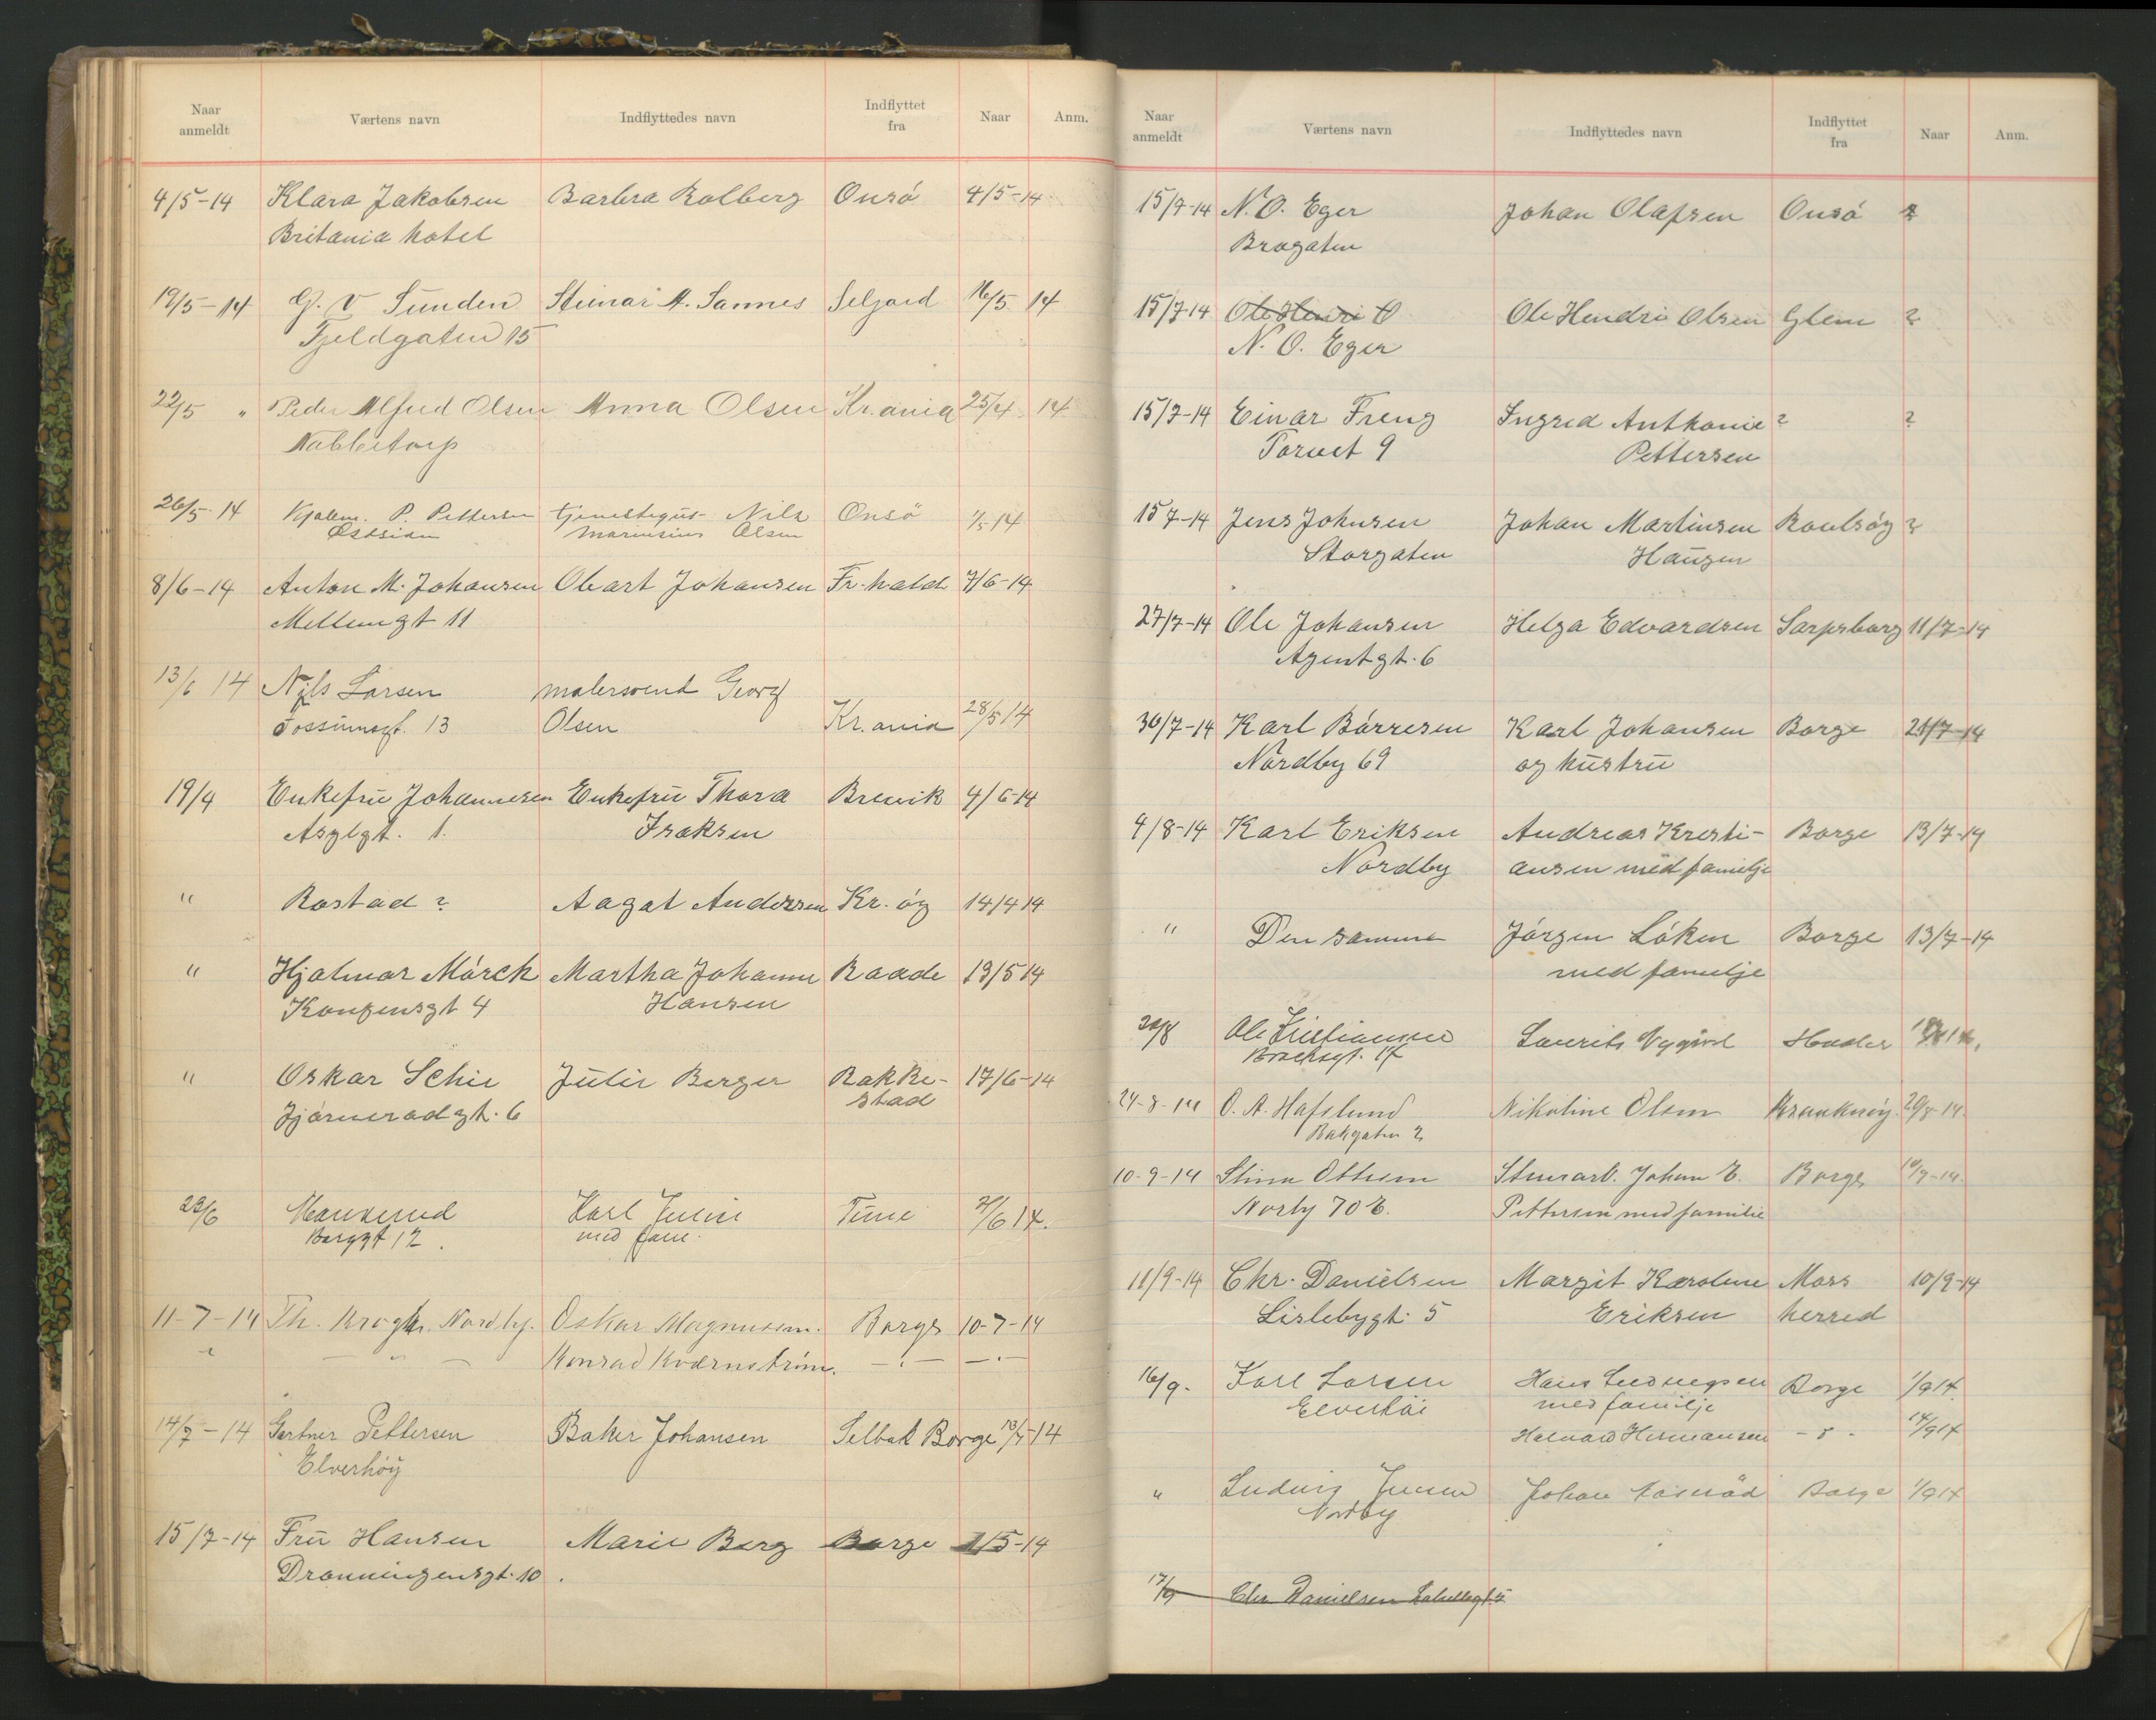 Naar anmeldt Værtens navn Indflyttedes navn Indflyttet fra Naar Anm.
4/5-14 Klara Jakobsen Barbra Kolberg Onsö 4/5-14
Britania hotel
19/5-14 G. V Sunden Steinar A. Sannes Seljord 16/5 14
Fjeldgaten 15
22/5 " Peder Alfred Olsen Anna Olsen Kr.ania 25/4 14
Nabbetorp
26/5-14 Hjalm. P. Pettersen tjenestegut Nils Onsö 1/5 14
Østsiden Marinsius Olsen
8/6-14 Anton M. Johansen Obart Johansen Fr.hald 7/6-14
Mellemgt 11
13/6 14 Nils Larsen malersvend Georg
Fossumsgt. 13 Olsen Kr.ania 28/5 14
19/4 Enkefru Johannesen Enkefru Thora Brevik 4/6-14
Asylgt. 1. Isaksen
" Rostad ? Aagat Andersen Kr. öy 14/4 14
" Hjalmar Mörck Martha Johanne Raade 13/5 14
Kongensgt 4 Hansen
" Oskar Schie Julie Berger Rakke- 17/6-14
Gjörnerödgt. 6 stad
23/6 Karl Tune /6 14.
Borggt 12. med fam.
11-7-14 Th. Krogh. Nordby. Oskar Magnusen. Borge 10-7-14
" — " — Konrad Kværnström. — " — — " —
14/7-14 Gartner Pettersen Baker Johansen Selbak Borge 13/7-14
Elverhöy
15/7-14 Fru Hansen Marie Berg Borge 1/5-14
Dronningensgt. 10.
Naar anmeldt Værtens navn Indflyttedes navn Indflyttet fra Naar Anm.
15/7-14 N. O. Eger Johan Olafsen Onsö ?
Brogaten
15/7-14 Ole Henri O Ole Hendri Olsen Glem ?
N. O. Eger
15/7-14 Einar Freng Ingrid Anthonie ? ?
Torvet 9 Pettersen
15 7-14 Jens Johnsen Johan Martinsen Rolvsöy ?
Storgaten Haugen
27/7-14 Ole Johansen Helga Edvardsen Sarpsborg 11/7-14
Agentgt. 6
30/7-14 Karl Börresen Karl Johansen Borge 21/7-14
Nordby 69 og hustru
4/8-14 Karl Eriksen Andreas Kristi- Borge 13/7-14
Nordby ansen med familje
" Den samme Jörgen Löken Borge 13/7-14
med familje
20/8 Ole Kristiansen Laurits Nygård
Brochsgt. 17
24-8-14 O. A. Hafslund Nikoline Olsen Kraakeröy. 20/8-14.
Bakgaten 2
10-9-14 Stina Ottesen Stenarb. Johan E. Borge 10/9-14.
Norby 70 b. Pettersen med familie
11/9-14 Chr. Danielsen Margit Karoline Moss 10/9-14
Lislebygt. 5 Eriksen herred
16/9. Karl Larsen Hans Ludvigsen Borge 1/9 14
Elverhöi med familje
Halvard Hermansen - " - 14/9 14
" Ludvig Jensen Johan Borge 1/9 14
Nordby
17/9 Chr Danielsen